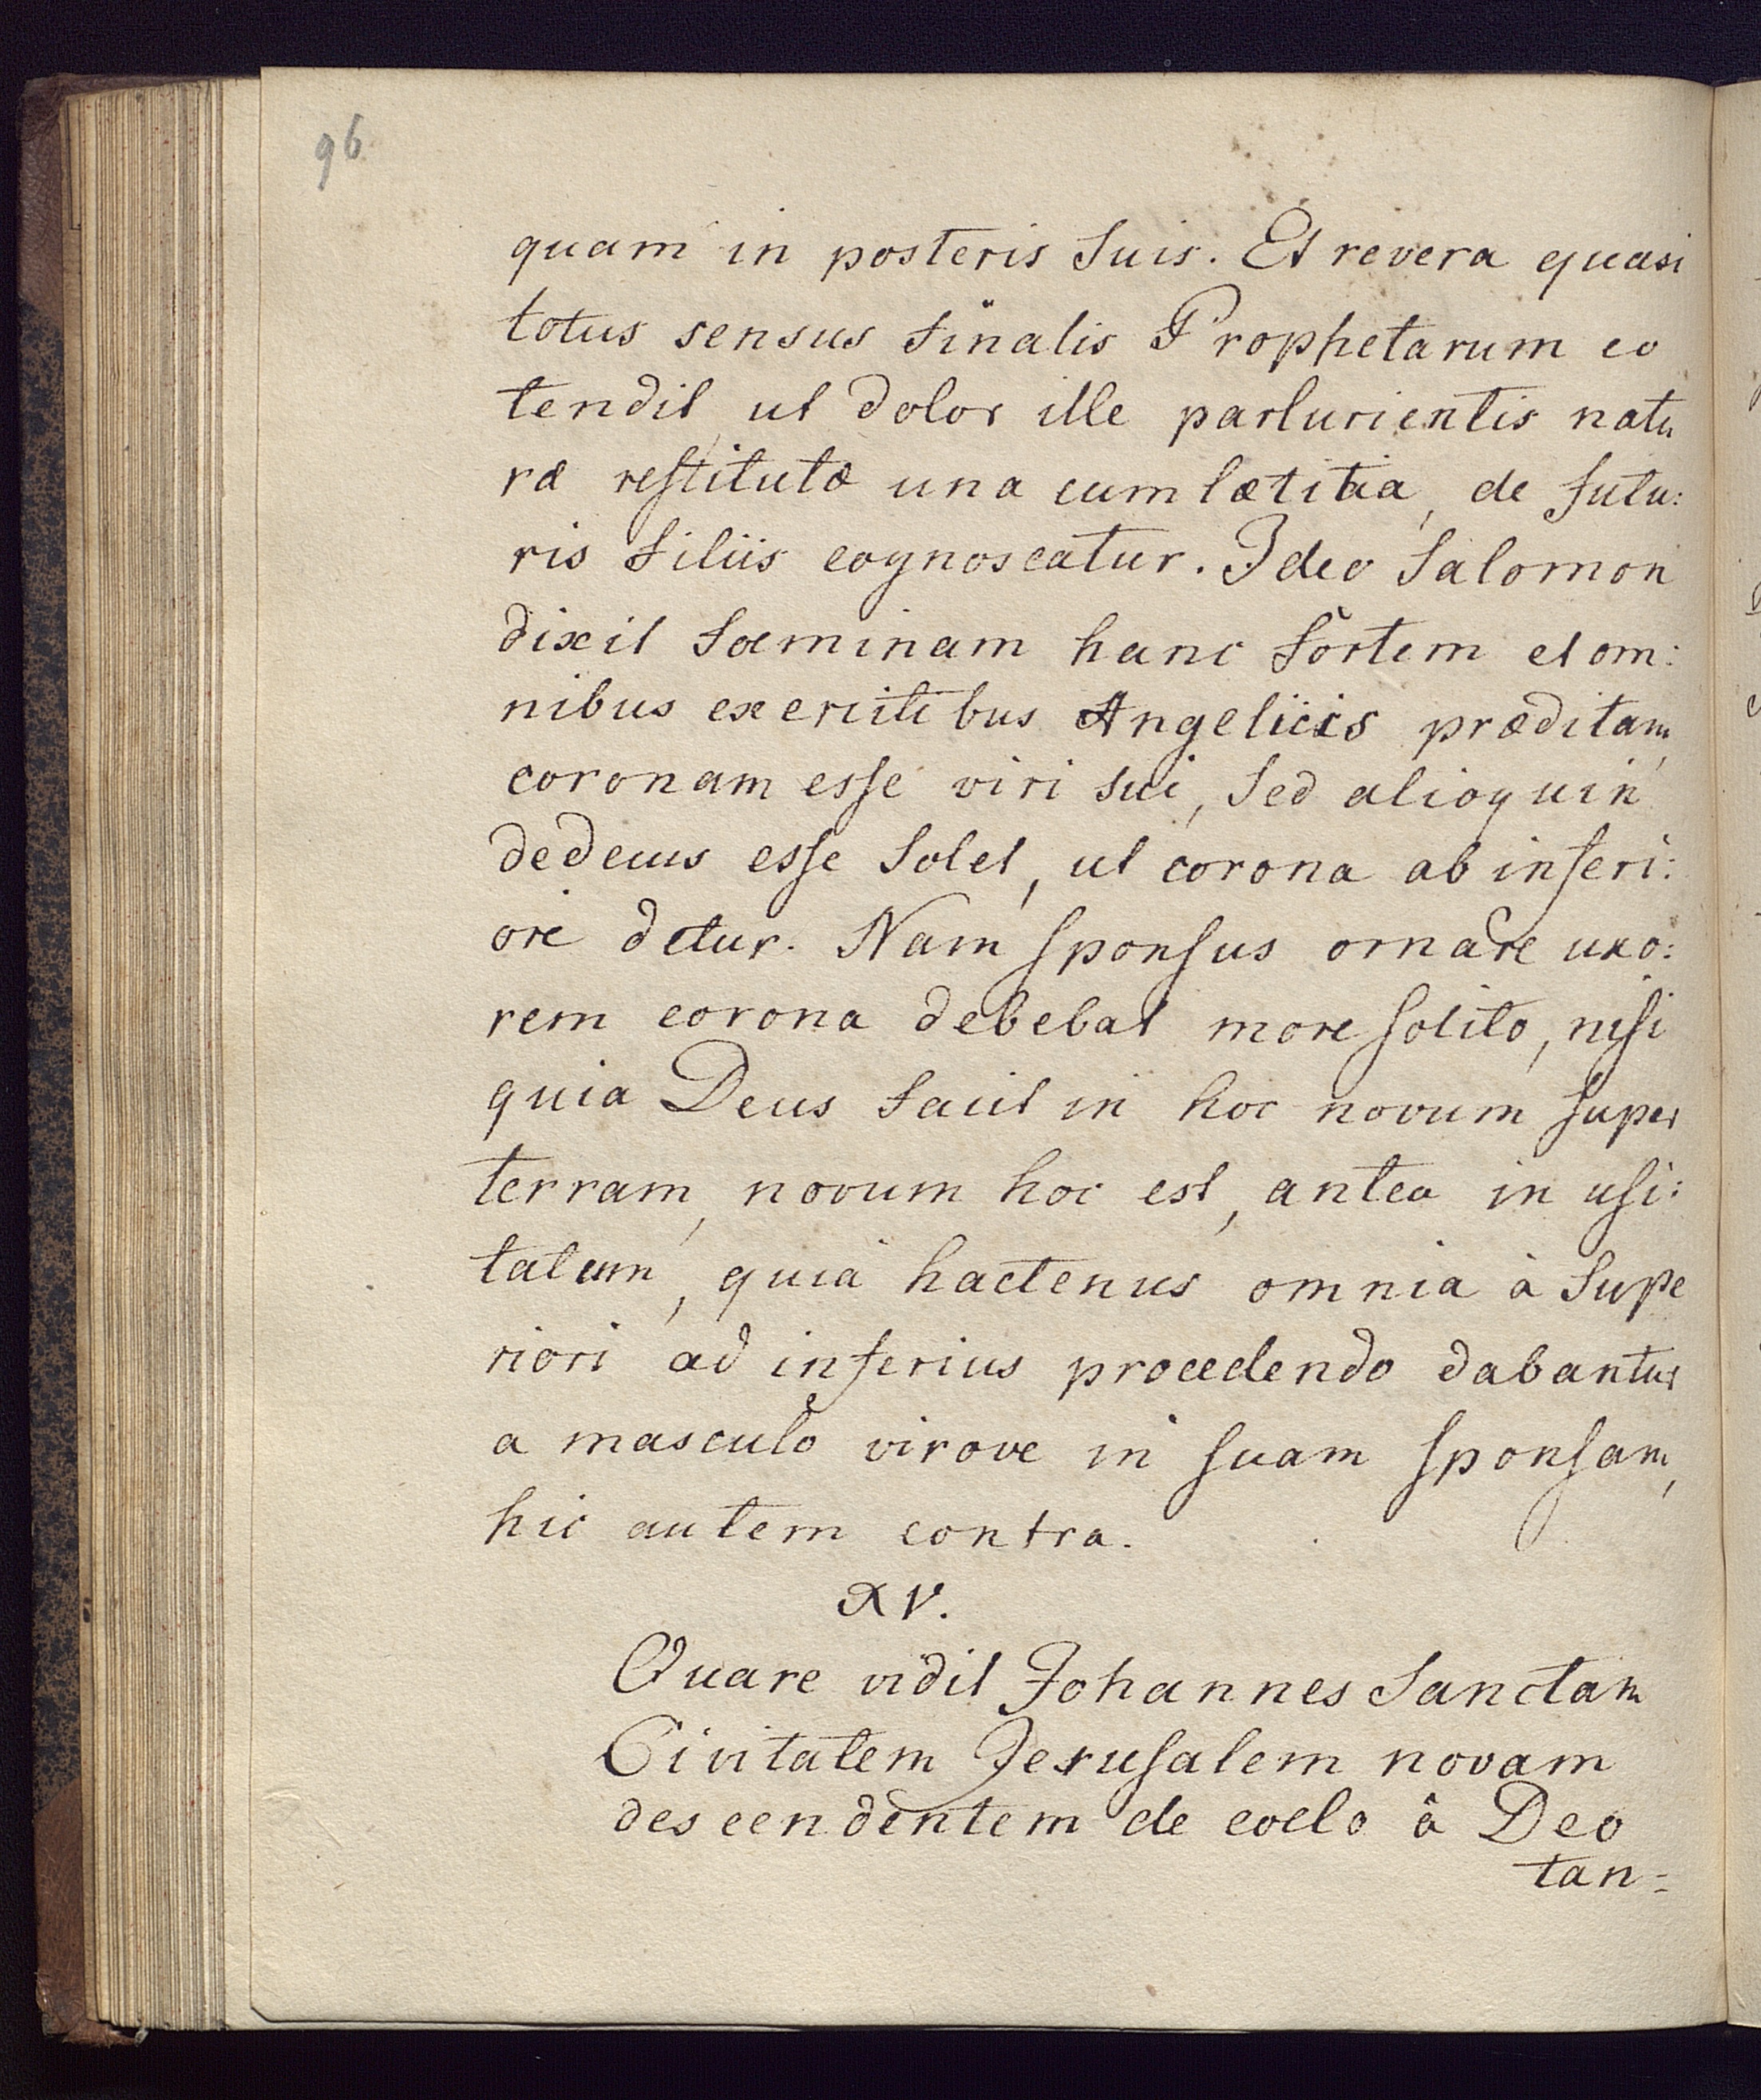 96
quam in posteris suis. Et revera quasi
totus sensus finalis Prophetarum eo
tendit ut dolor ille parturientis natu
ræ restitutæ una cum lætitia, de futu:
ris filiis cognoscatur. Ideo Salomon
dixit foeminam hanc fortem et om:
nibus exercitibus Angelicis præditam,
coronam esse viri sui, sed alioquin
dedecus esse solet, ut corona ab inferi:
ore detur. Nam sponsus ornare uxo:
rem corona debebat more solito, nisi
quia Deus facit in hoc novum super
terram, novum hoc est, antea in usi:
tatum, quia hactenus omnia à supe
riori ad inferius procedendo dabantur
a masculo virove in suam sponsam,
hic autem contra.
XV.
Quare vidit Johannes Sanctam
Civitatem Jerusalem novam
descendentem de coelo â Deo
tan=